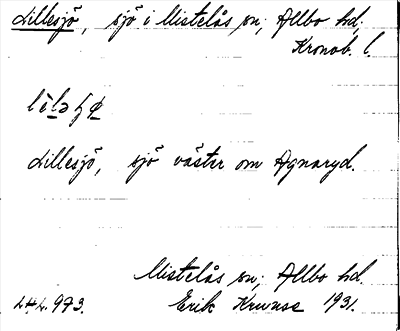 Lillesjö, sjö i Mistelås sn; Allbo hd,
Kronob. l.
Lillesjö, sjö väster om Agnaryd.
Mistelås sn; Allbo hd.
LHL. 973. Erik Kruuse 1931.